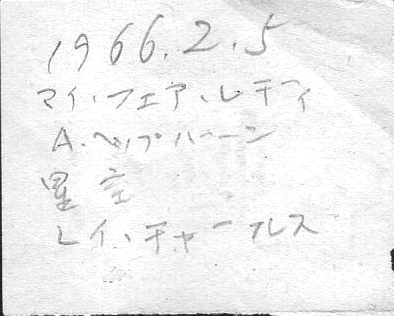 1966.2.5
マイ・フェア・レディ
A.ヘップバーン
星空
レイ・チャールス